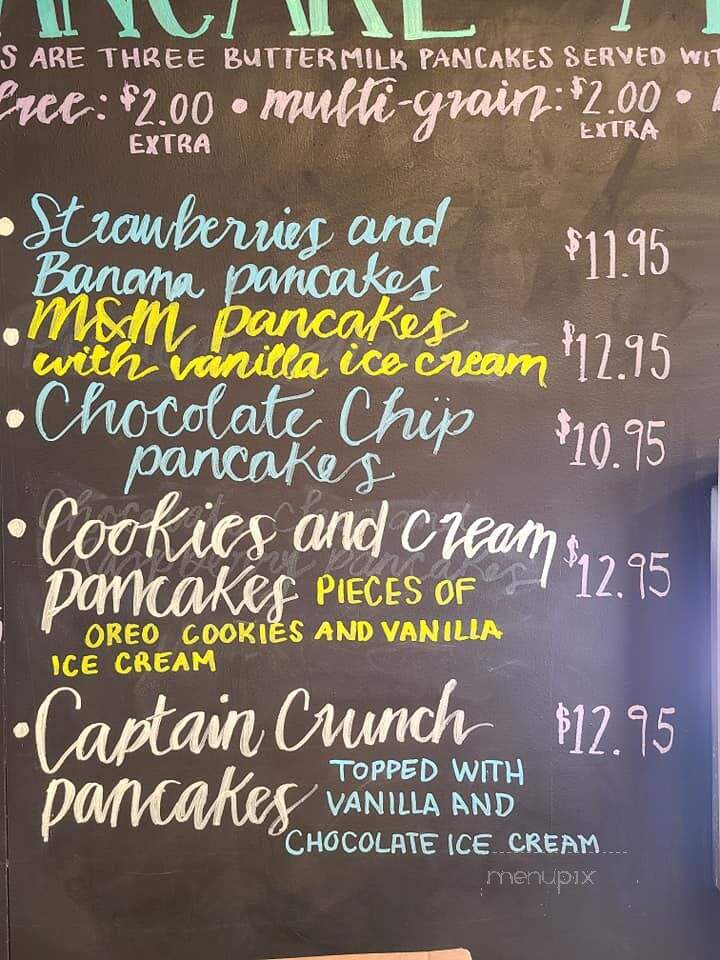 ANCAKE
S ARE THREE BUTTERMILK PANCAKES SERVED WIT
free: $2.00 • multi-grain: $2.00 •
EXTRA EXTRA
• Strawberries and
Banana pancakes $11.95
• M&M pancakes
with vanilla ice cream $12.95
• Chocolate Chip
pancakes $10.95
• Cookies and cream
pancakes PIECES OF $12.95
OREO COOKIES AND VANILLA
ICE CREAM
• Captain Crunch $12.95
pancakes TOPPED WITH
VANILLA AND
CHOCOLATE ICE CREAM
menupix